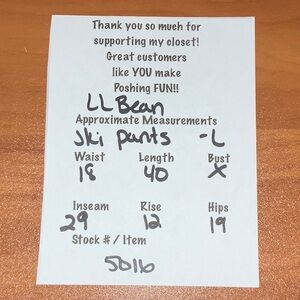 Thank you so much for
supporting my closet!
Great customers
like YOU make
Poshing FUN!!
LL Bean
Approximate Measurements
Ski pants - L
Waist Length Bust
18 40 X
Inseam Rise Hips
29 12 19
Stock # / Item
5016